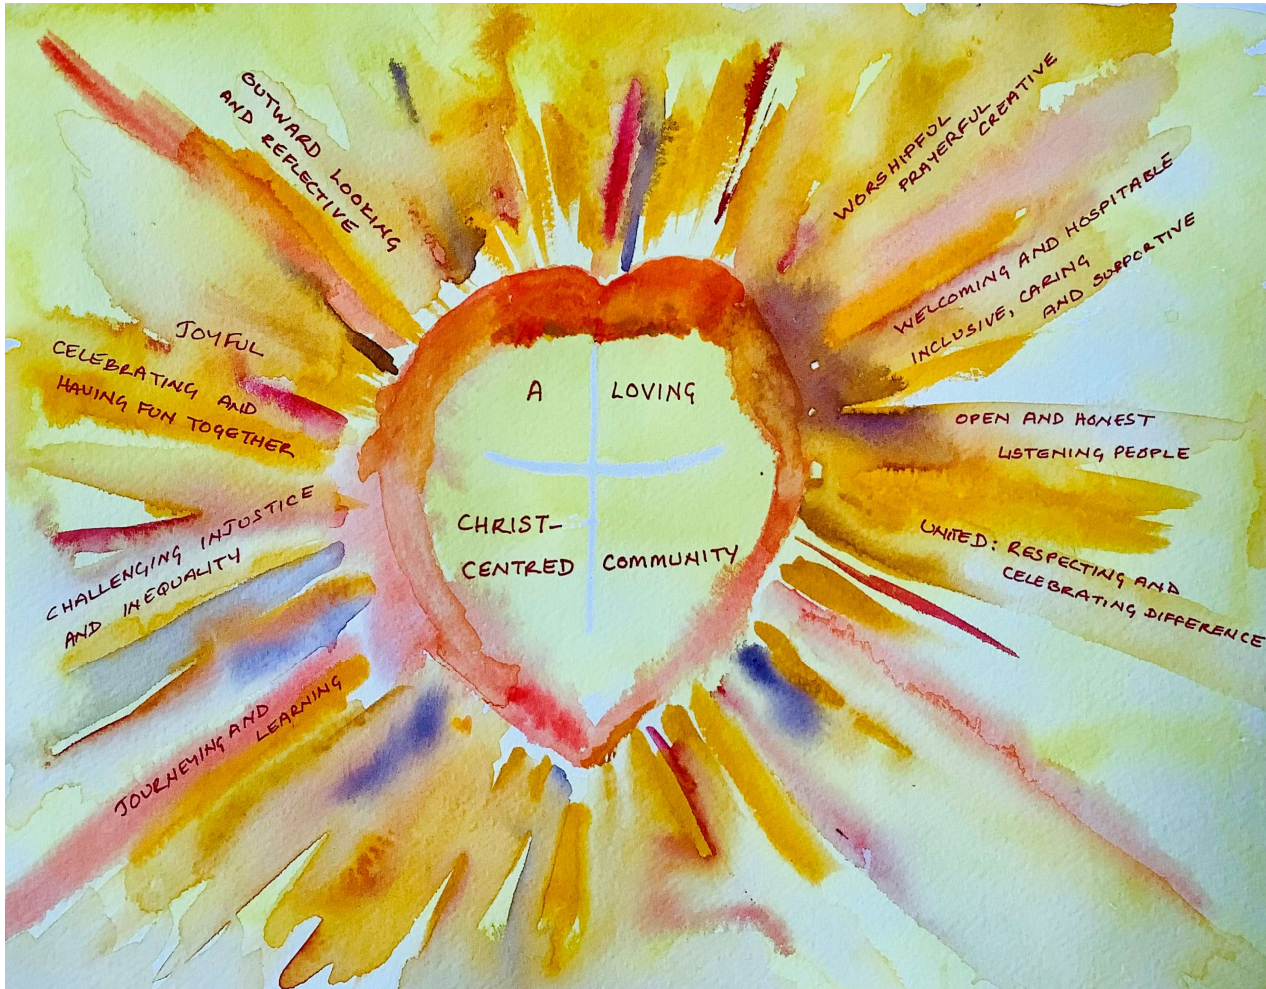 OUTWARD LOOKING
AND REFLECTIVE
WORSHIPFUL
PRAYERFUL
CREATIVE
WELCOMING AND HOSPITABLE
INCLUSIVE, CARING
AND SUPPORTIVE
JOYFUL
CELEBRATING AND
HAVING FUN TOGETHER
A LOVING
CHRIST-
CENTRED COMMUNITY
OPEN AND HONEST
LISTENING PEOPLE
UNITED: RESPECTING AND
CELEBRATING DIFFERENCE
CHALLENGING INJUSTICE
AND INEQUALITY
JOURNEYING AND
LEARNING